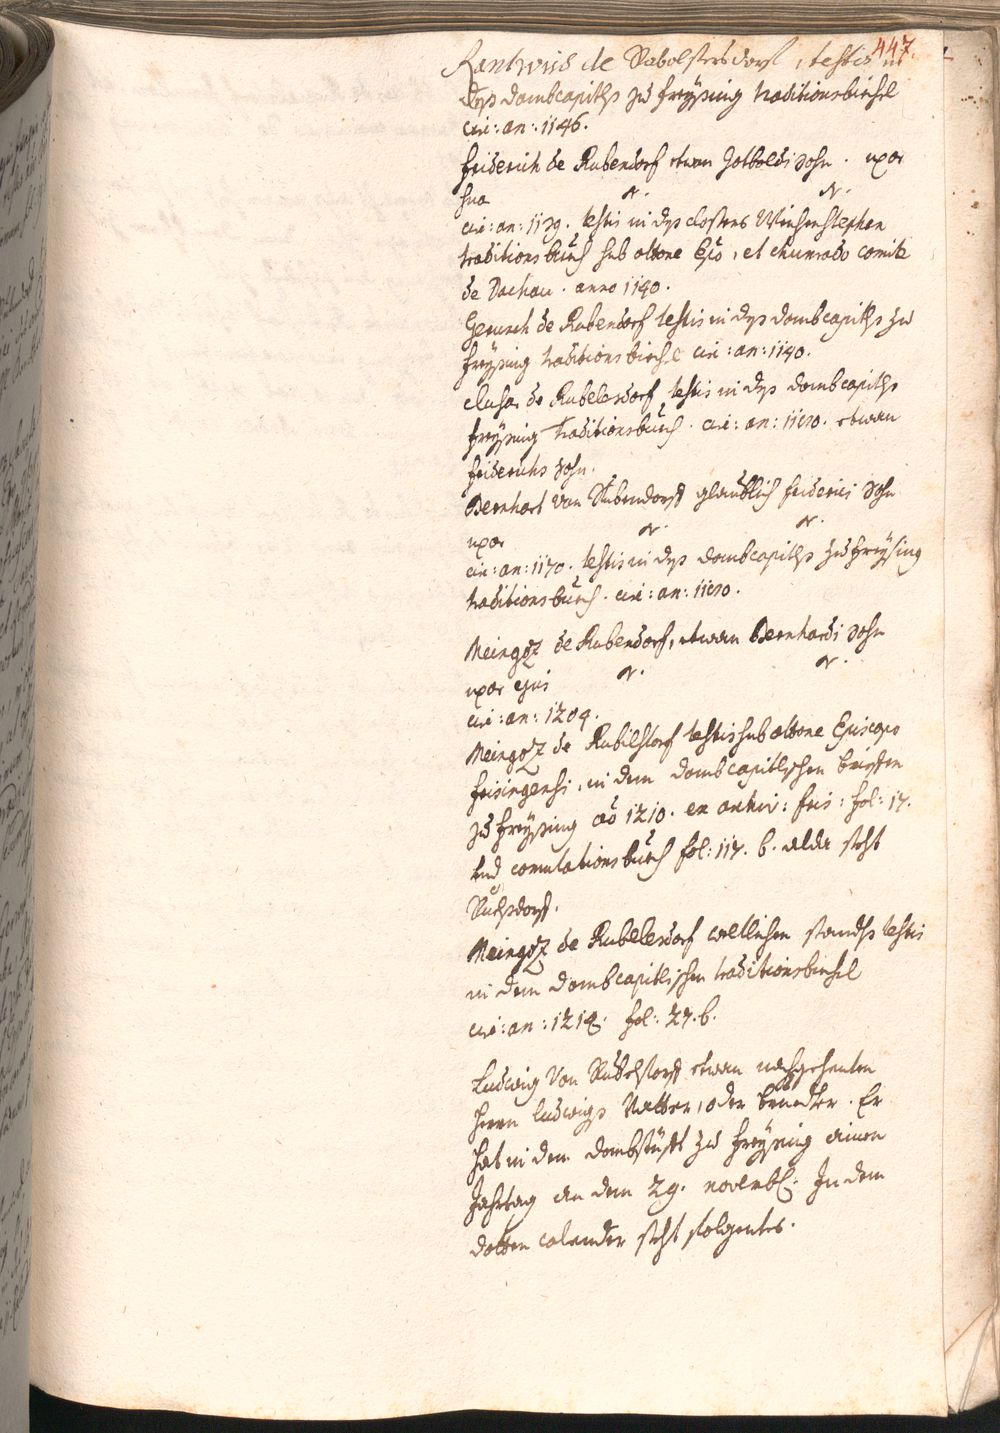 447.
Rantwiis de Rabolstersdorf, testis in
dess dombcapitls zu Freysing traditionsbiechl
circ: an: 1146.
Friderich de Rubendorf etwan Gotboldi sohn. uxor
sua N. N.
circ: an: 1139. testis in dess closters Weichenstephen
traditionsbuech sub Ottone Epō, et Chunrado comite
de Dachau. anno 1140.
Gerunch de Rubendorf testis in dess dombcapitls zu
Freysing traditionsbiechl circ: an: 1140.
de Rubelesdorf testis in dess dombcapitls
Freysing traditionsbuech. circ: an: etwan
Friderichs sohn.
Bernhart von Rubendorff glaublich Friderici sohn
uxor N. N.
circ: an: 1170. testis in dess dombcapitls zu Freysing
traditionsbuech. circ: an:
Meingoz de Rubendorf, etwan Bernhardi sohn
uxor eius N. N.
circ: an: 1204.
Meingoz de Rubilstorf testis sub Ottone Episcopo
Frisingensi, in dem dombcapitlischen brieffen
zu Freysing aō 1210. ex archiv: Fris: fol: 17.
und comutationsbuech fol: 117. b. alda steht

Meingoz de Rubelesdorf weltlichen standts testis
in dem dombcapitlischen traditionsbiechel
circ: an: fol: 27. b.
Ludwig von Rubelstorff etwan nachgehenten
herrn Ludwigs Vatter, oder brueder. Er
hat in dem dombstüfft zu Freysing ainen
Jahrtag an dem 29. novemb: In dem
dotten calender steht folgentes.